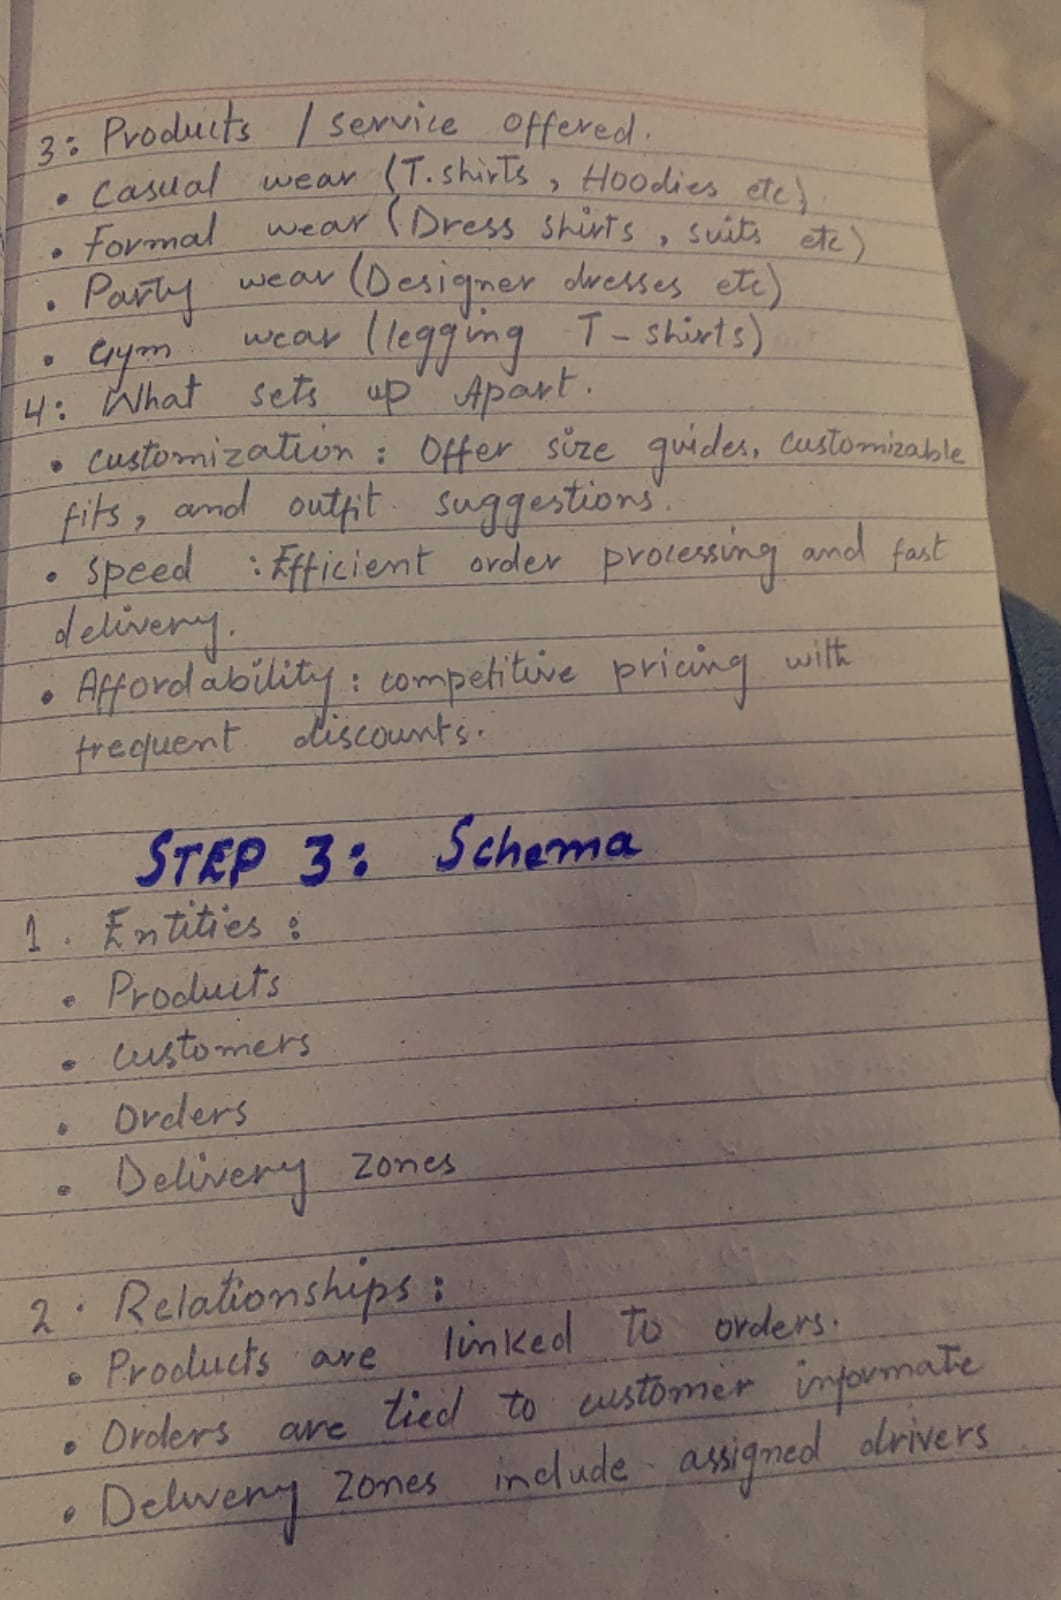 3: Products / service offered.
• Casual wear (T.shirts, Hoodies etc)
• Formal wear (Dress shirts, suits etc)
• Party wear (Designer dresses etc)
• Gym wear (legging T-shirts)
4: What sets up Apart.
• customization: Offer size guides, customizable
fits, and outfit suggestions.
• speed : Efficient order processing and fast
delivery.
• Affordability: competitive pricing with
frequent discounts.
STEP 3: Schema
1. Entities:
• Products
• customers
• Orders
• Delivery zones
2. Relationships:
• Products are linked to orders.
• Orders are tied to customer informate
• Delivery zones include assigned drivers